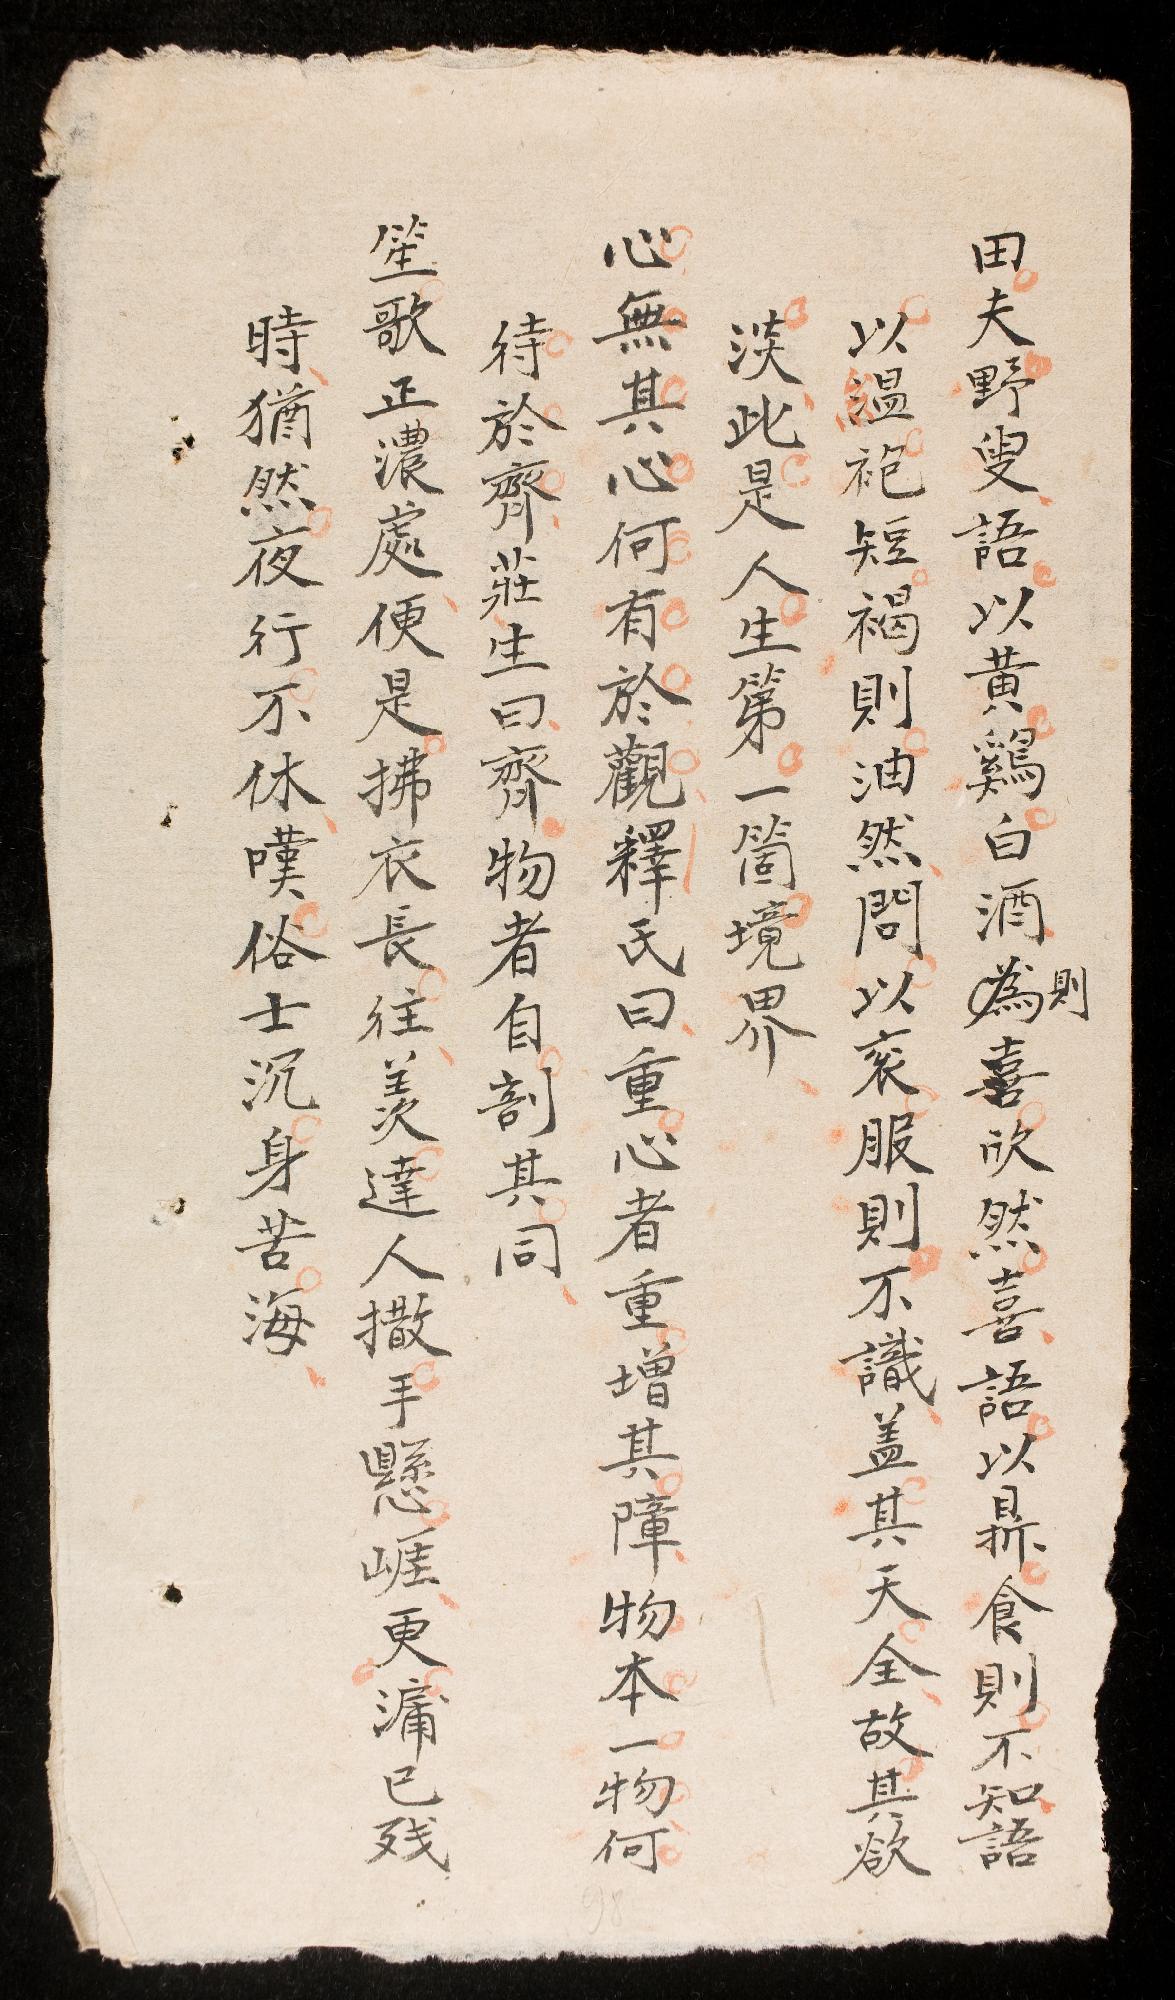 田夫野叟語以黄鷄白酒則為喜欣然喜語以鼎食則不知語
以温袍短褐則油然問以衮服則不識盖其天全故其欲
淡此是人生第一箇境界
心無其心何有於觀釋氏曰重心者重增其障物本一物何
待於齊莊生曰齊物者自剖其同
笙歌正濃處便是拂衣長往羡達人撒手懸崖更漏已残
時猶然夜行不休嘆俗士沉身苦海
98